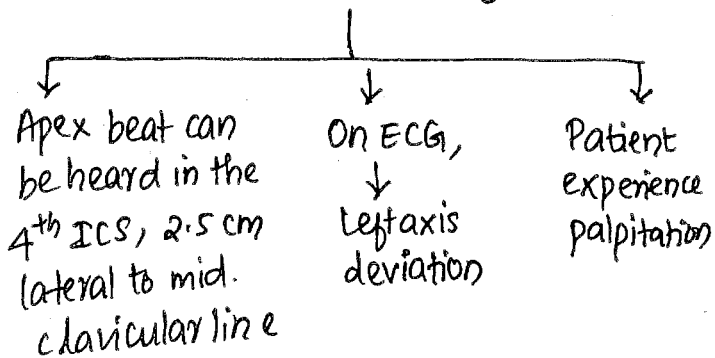 Apex beat can
be heard in the
4th ICS, 2.5 cm
lateral to mid.
clavicular line
On ECG,
Left axis
deviation
Patient
experience
palpitation